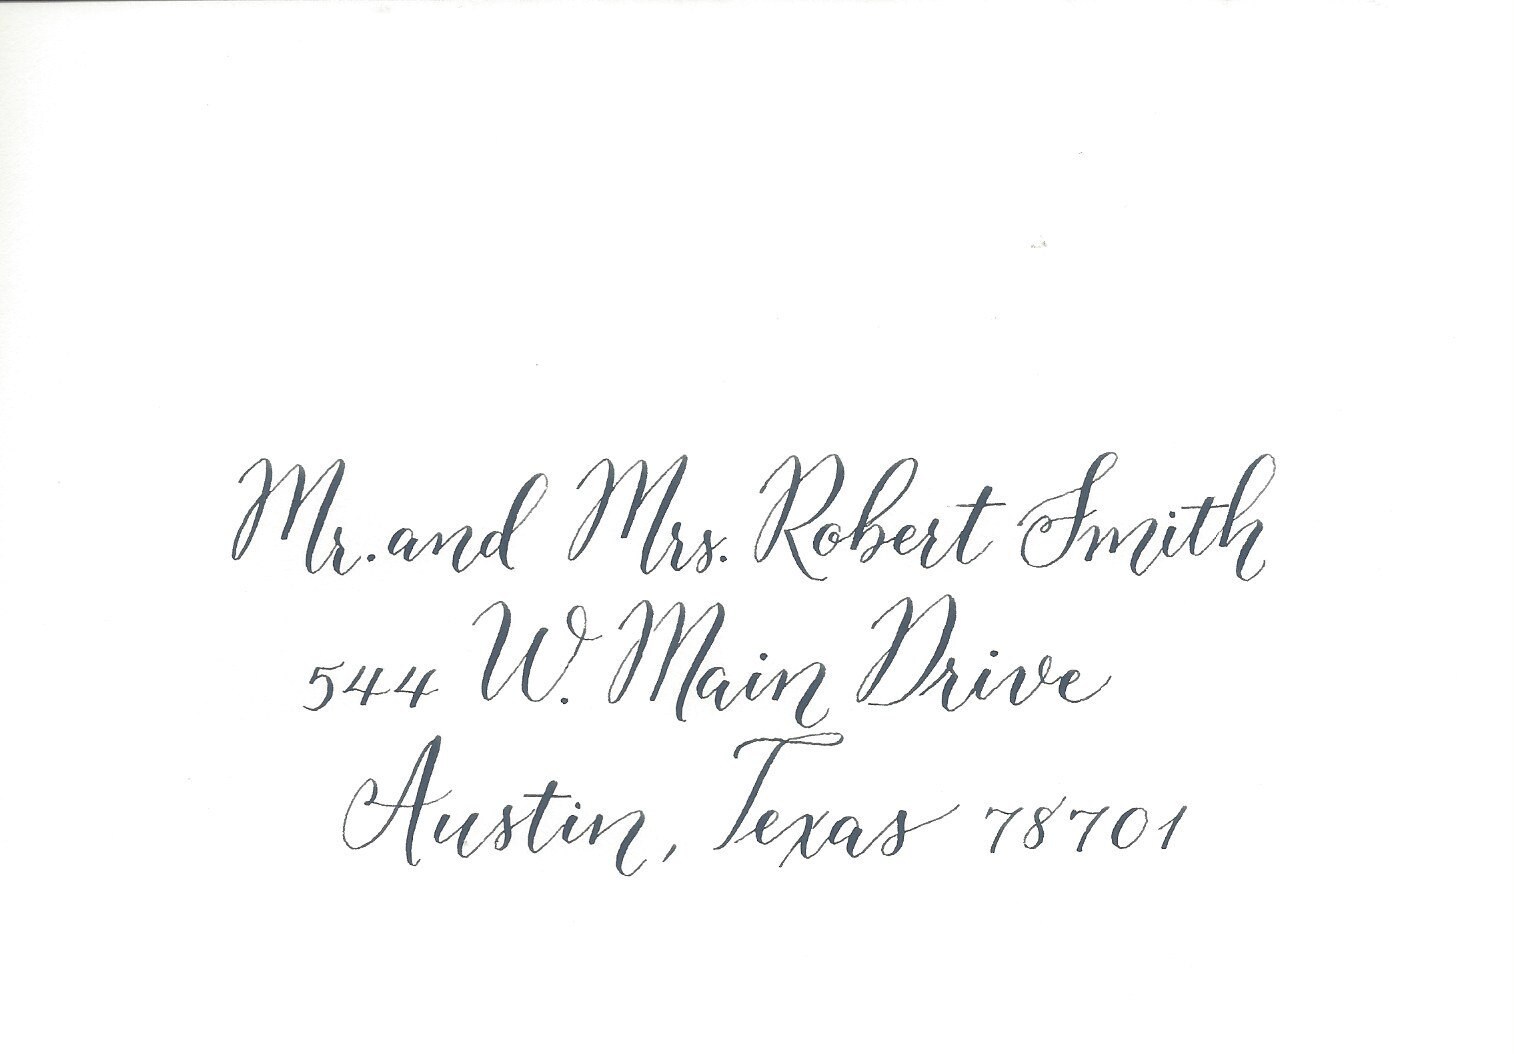 Mr. and Mrs. Robert Smith
544 W. Main Drive
Austin, Texas 78701